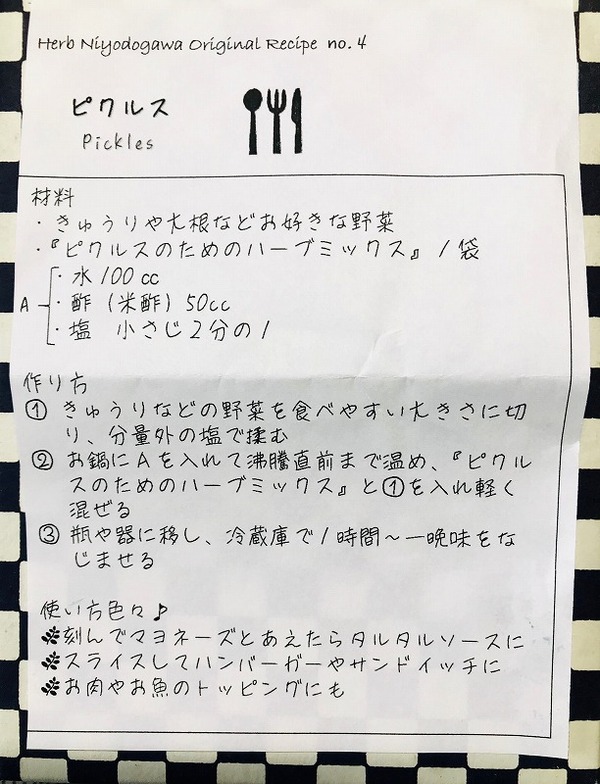 Herb Niyodogawa Original Recipe no. 4
ピクルス
Pickles
材料
・きゅうりや大根などお好きな野菜
・『ピクルスのためのハーブミックス』1袋
・水100cc
A ・酢（米酢）50cc
・塩 小さじ2分の1
作り方
① きゅうりなどの野菜を食べやすい大きさに切
り、分量外の塩で揉む
② お鍋にAを入れて沸騰直前まで温め、『ピクル
スのためのハーブミックス』と①を入れ軽く
混ぜる
③ 瓶や器に移し、冷蔵庫で1時間～一晩味をな
じませる
使い方色々♪
刻んでマヨネーズとあえたらタルタルソースに
スライスしてハンバーガーやサンドイッチに
お肉やお魚のトッピングにも